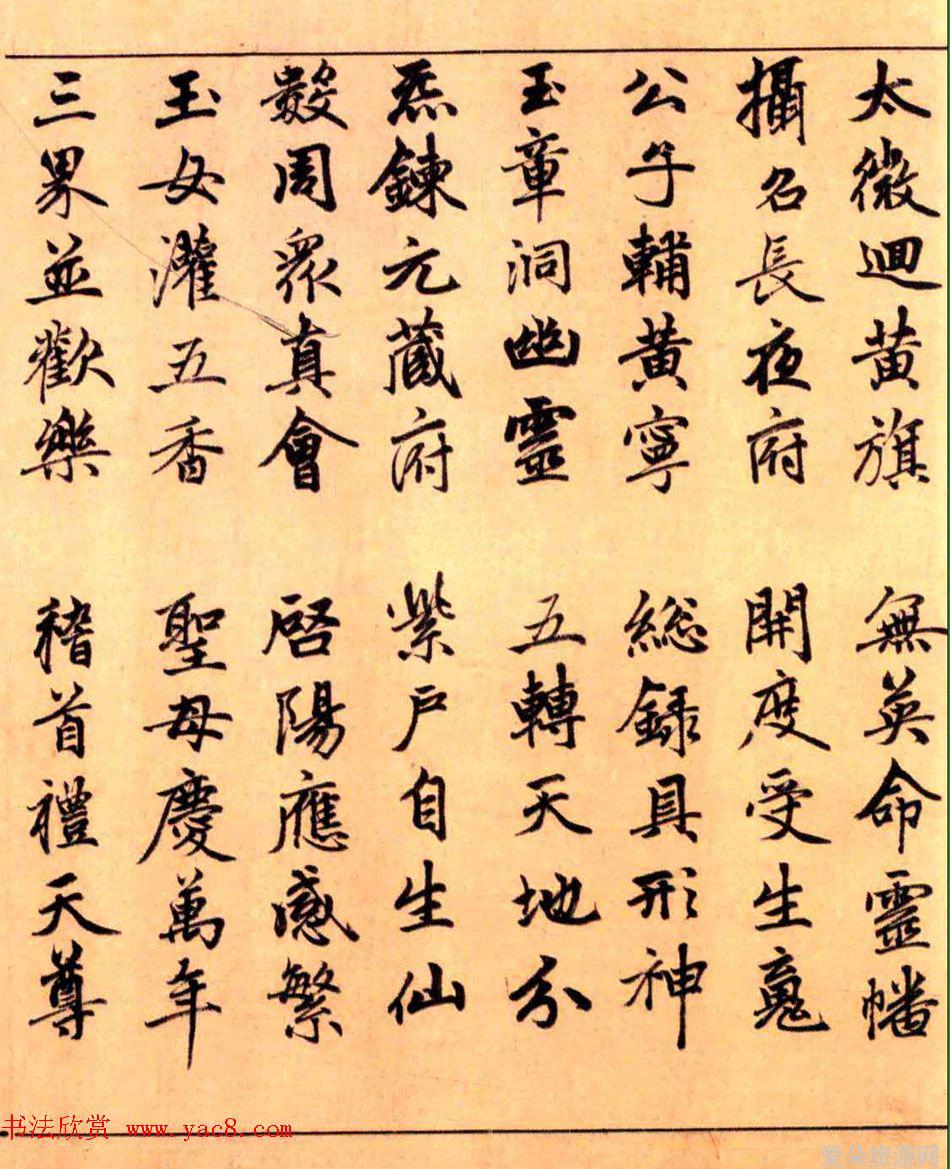 太微迴黃旗 無英命靈幡
攝名長夜府 開度受生魂
公子輔黃寧 総録具形神
玉章洞幽靈 五轉天地分
炁鍊元藏府 紫戶自生仙
數周眾真會 啓陽應感繁
玉女灌五香 聖母慶萬年
三界並歡樂 稽首禮天尊
书法欣赏 www.yac8.com
爱朵旅游网